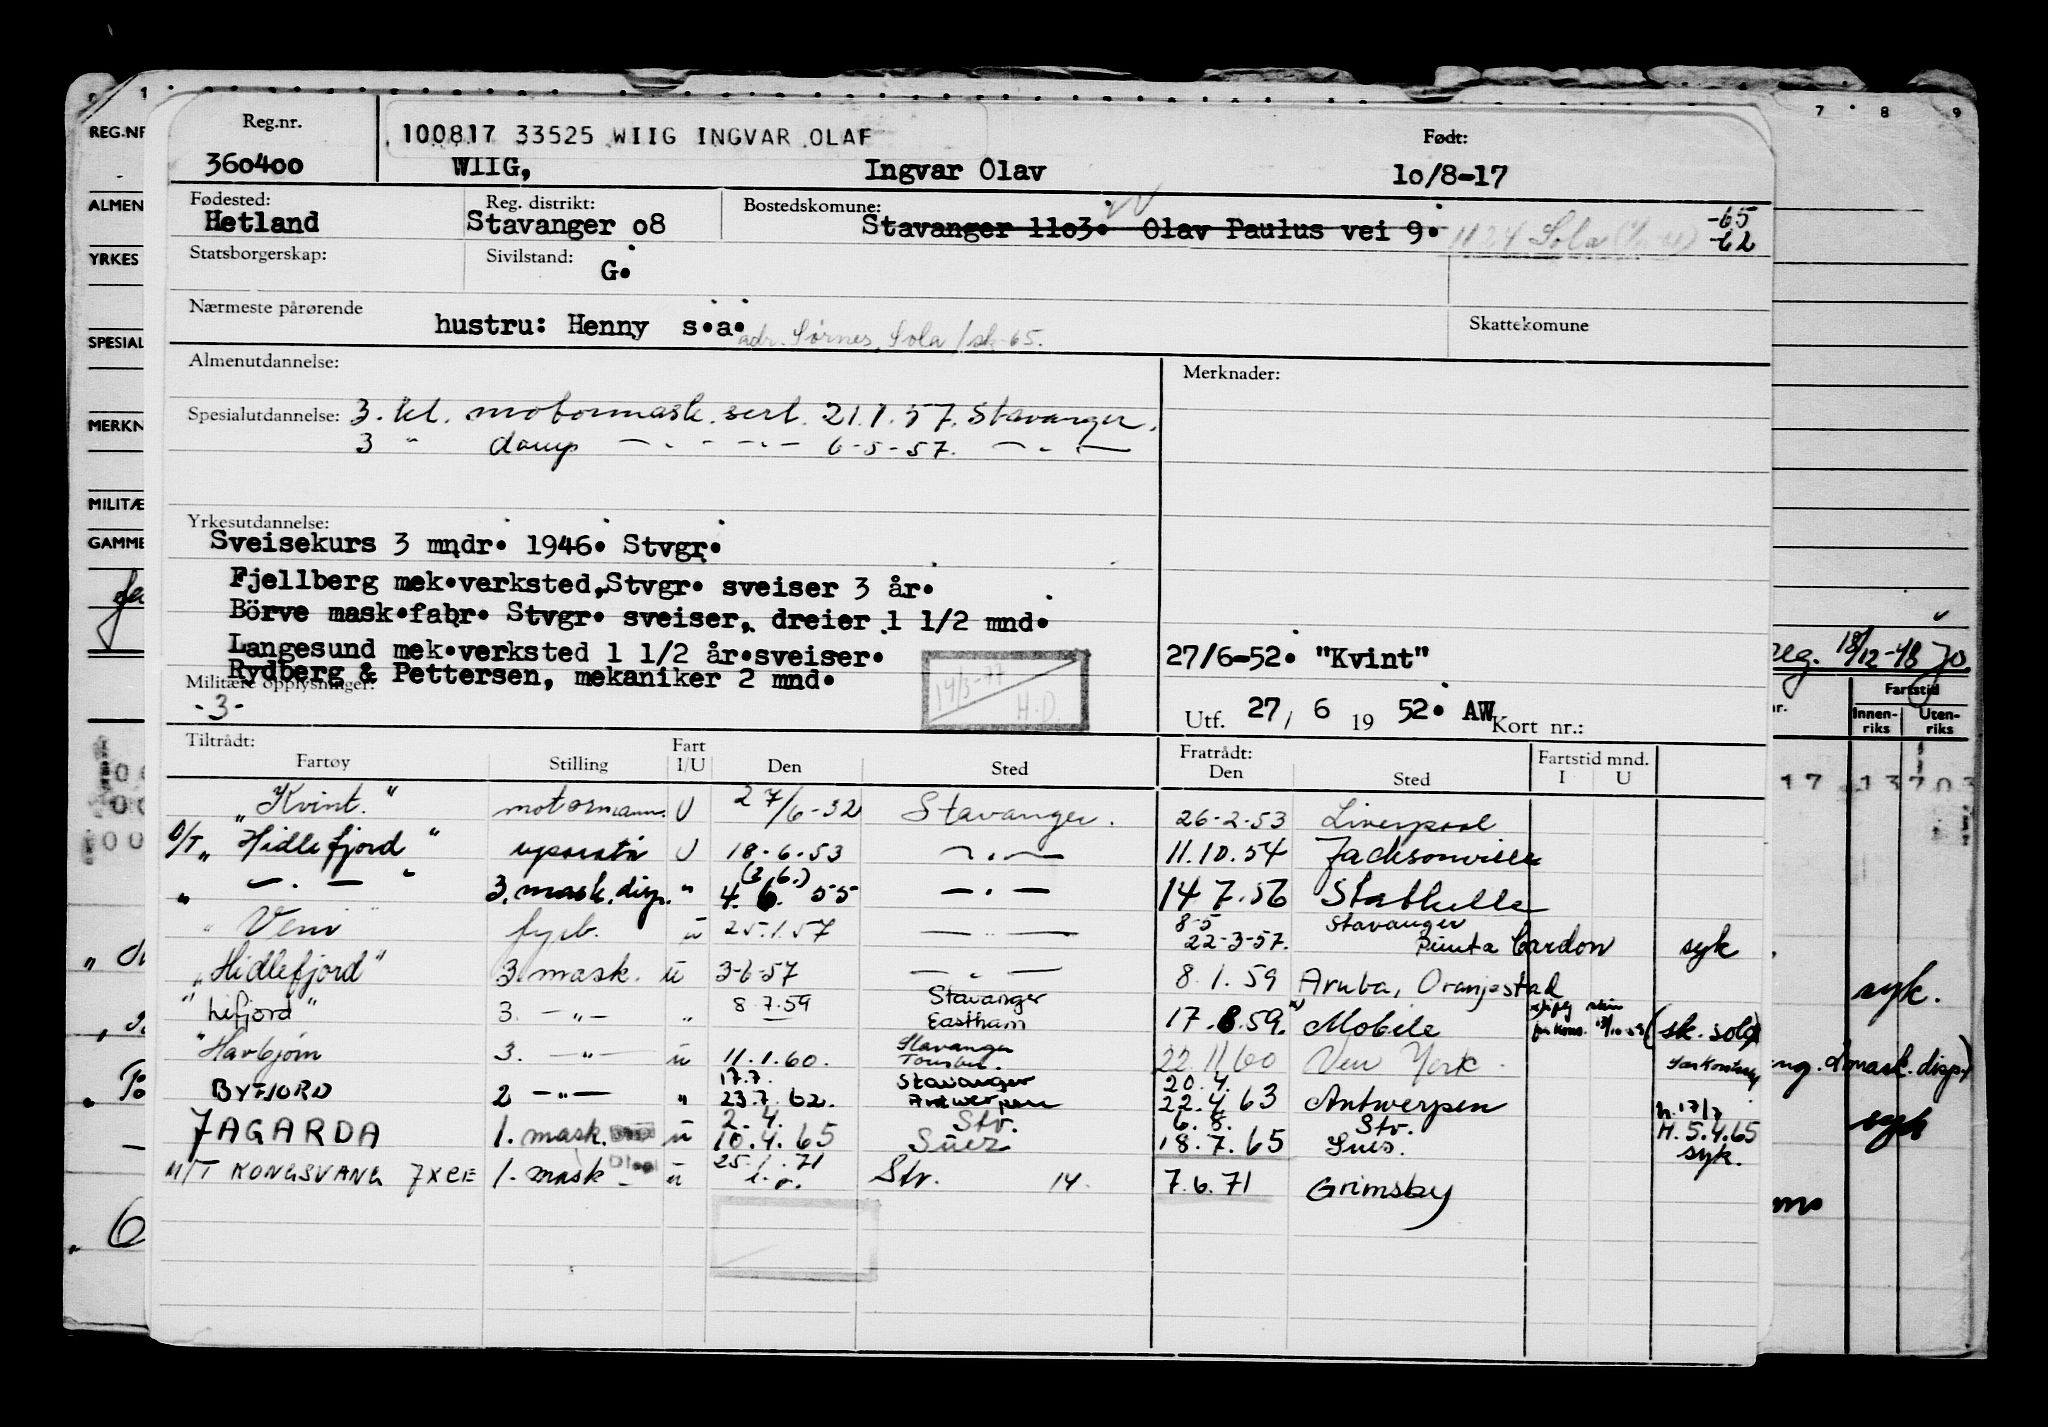 7 8 9
REG.NR
Reg.nr.
100817 33525 WIIG INGVAR OLAF
Født:
360400 WIIG, Ingvar Olav 10/8-17
ALMEN
Fødested: Reg. distrikt: Bostedskomune:
Hetland Stavanger 08 Stavanger 1103. Olav Paulus vei 9. 1124 Sola -65
-62
YRKES
Statsborgerskap: Sivilstand:
G.
Nærmeste pårørende
hustru: Henny s.a. adr. Sørnes, Sola /sk-65.
Skattekomune
SPESIAL
Almenutdannelse: Merknader:
MERKN
Spesialutdannelse: 3. kl. motormask. sert. 21.1.57. Stavanger.
3 " damp — . — . — 6-5-57. — . —
MILITÆ
Yrkesutdannelse:
GAMME
Sveisekurs 3 mndr. 1946. Stvgr.
Fjellberg mek.verksted, Stvgr. sveiser 3 år.
Börve mask.fabr. Stvgr. sveiser, dreier 1 1/2 mnd.
Langesund mek.verksted 1 1/2 år.sveiser.
27/6-52. "Kvint"
reg. 18/12-48
Rydberg & Pettersen, mekaniker 2 mnd.
Militære opplysninger:
-3-
14/3-77
H.D.
Utf. 27/ 6 19 52. AW Kort nr.:
Fartstid
Innen-riks Uten-riks
Tiltrådt: Fratrådt:
Fartøy Stilling Fart I/U Den Sted Den Sted Fartstid mnd. I U
17 13703
"Kvint." motormann. U 27/6-52 Stavanger. 26-2-53 Liverpool
D/T "Hidlefjord" U 18.6.53 — . — 11.10.54 Jacksonville
" — . — " 3. mask. disp. " (3/6.) 4. 6. 55 — . — 14 7.56 Stathelle
"Veni" fyrb. u 25.1.57 — " — 8-5 Stavanger
22-3-57. Punta Cardon syk
"Hidlefjord" 3. mask. u 3-6-57 — " — 8.1.59 Aruba, Oranjestad
syk.
"Lifjord" 3. — " — " 8.7.59 Stavanger
Eastham 17.8.59. x) Mobile (sk. sold)
"Havbjørn 3. — " — u 11.1.60. Stavanger
22.11 60 New York.
mask. disp.)
BYFJORD 2 — " — " 17.7. Stavanger 20.4.
23.7.62. Antwerpen 22.4 63 Antwerpen h. 17/7
syk
JAGARDA 1. mask. u 2.4. Stv. 6.8. Stv. H. 5.4.65
10.4.65 Suez 18.7.65 Suez. syk.
M/T KONGSVANG JXCE 1. mask - u 25.1.71 Stv. 14. 7.6.71 Grimsby